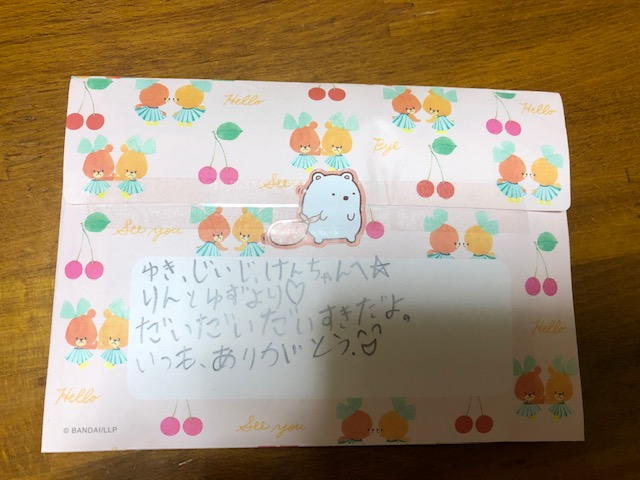 Hello
Hello
Bye
See you
See you
ゆき、じいじ、けんちゃんへ☆
りんとゆずより♡
だいだいだいすきだよ。
いつも、ありがとう。
Hello
Hello
See you
© BANDAI/LLP